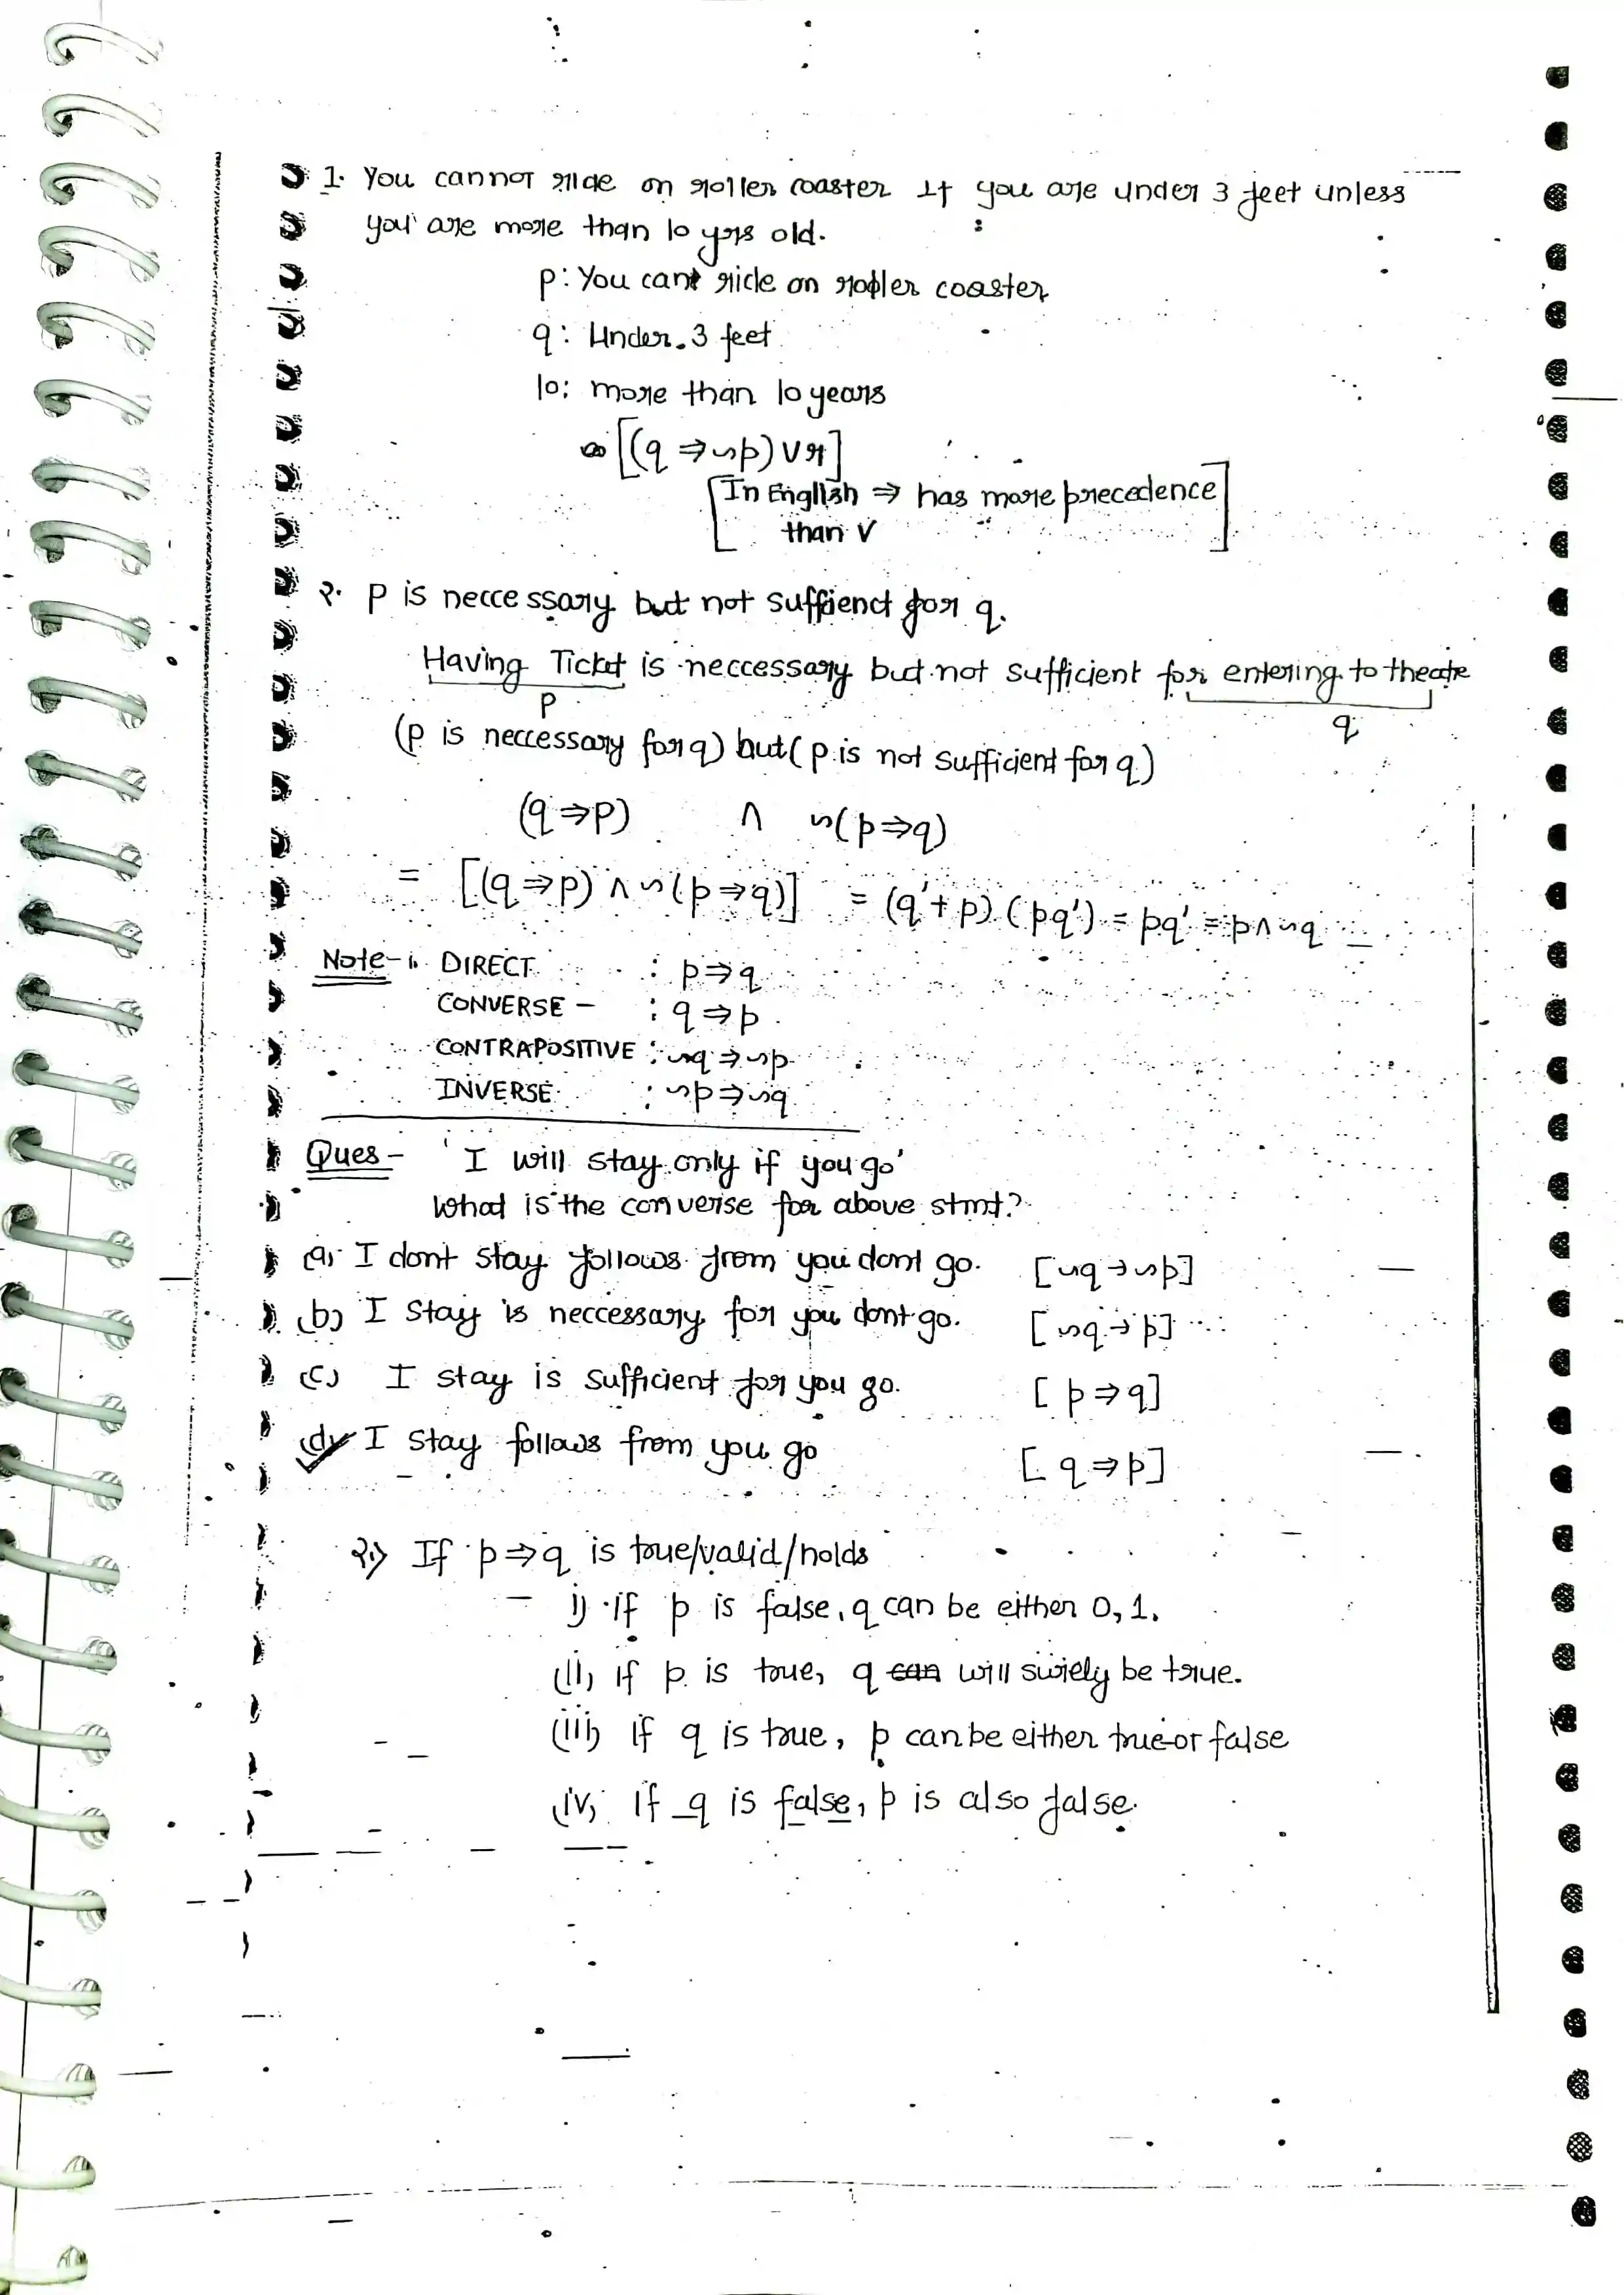 1. You cannot ride on roller coaster if you are under 3 feet unless
you are more than 10 yrs old.
p: You can ride on roller coaster
q: Under 3 feet
10: more than 10 years
[(q ⇒ ~p) ∨ r]
[In English ⇒ has more precedence
than ∨]
2. P is neccessary but not suffienct for q.
Having Ticket is neccessary but not sufficient for entering to theatre
p
q
(p is neccessary for q) but (p is not sufficient for q)
(q ⇒ p) ∧ ~(p ⇒ q)
= [(q ⇒ p) ∧ ~(p ⇒ q)] = (q' + p) (pq') = pq' = p ∧ ~q
Note - 1. DIRECT : p ⇒ q
CONVERSE - : q ⇒ p
CONTRAPOSITIVE : ~q ⇒ ~p
INVERSE : ~p ⇒ ~q
Ques - 'I will stay only if you go'
What is the converse for above stmt?
(a) I dont stay follows from you dont go. [~q → ~p]
(b) I stay is neccessary for you dont go. [~q → p]
(c) I stay is sufficient for you go. [p ⇒ q]
(d) I stay follows from you go [q ⇒ p]
2.) If p ⇒ q is true/valid/holds
i) if p is false, q can be either 0, 1.
(ii) if p is true, q can will surely be true.
(iii) if q is true, p can be either true or false
(iv) if q is false, p is also false.